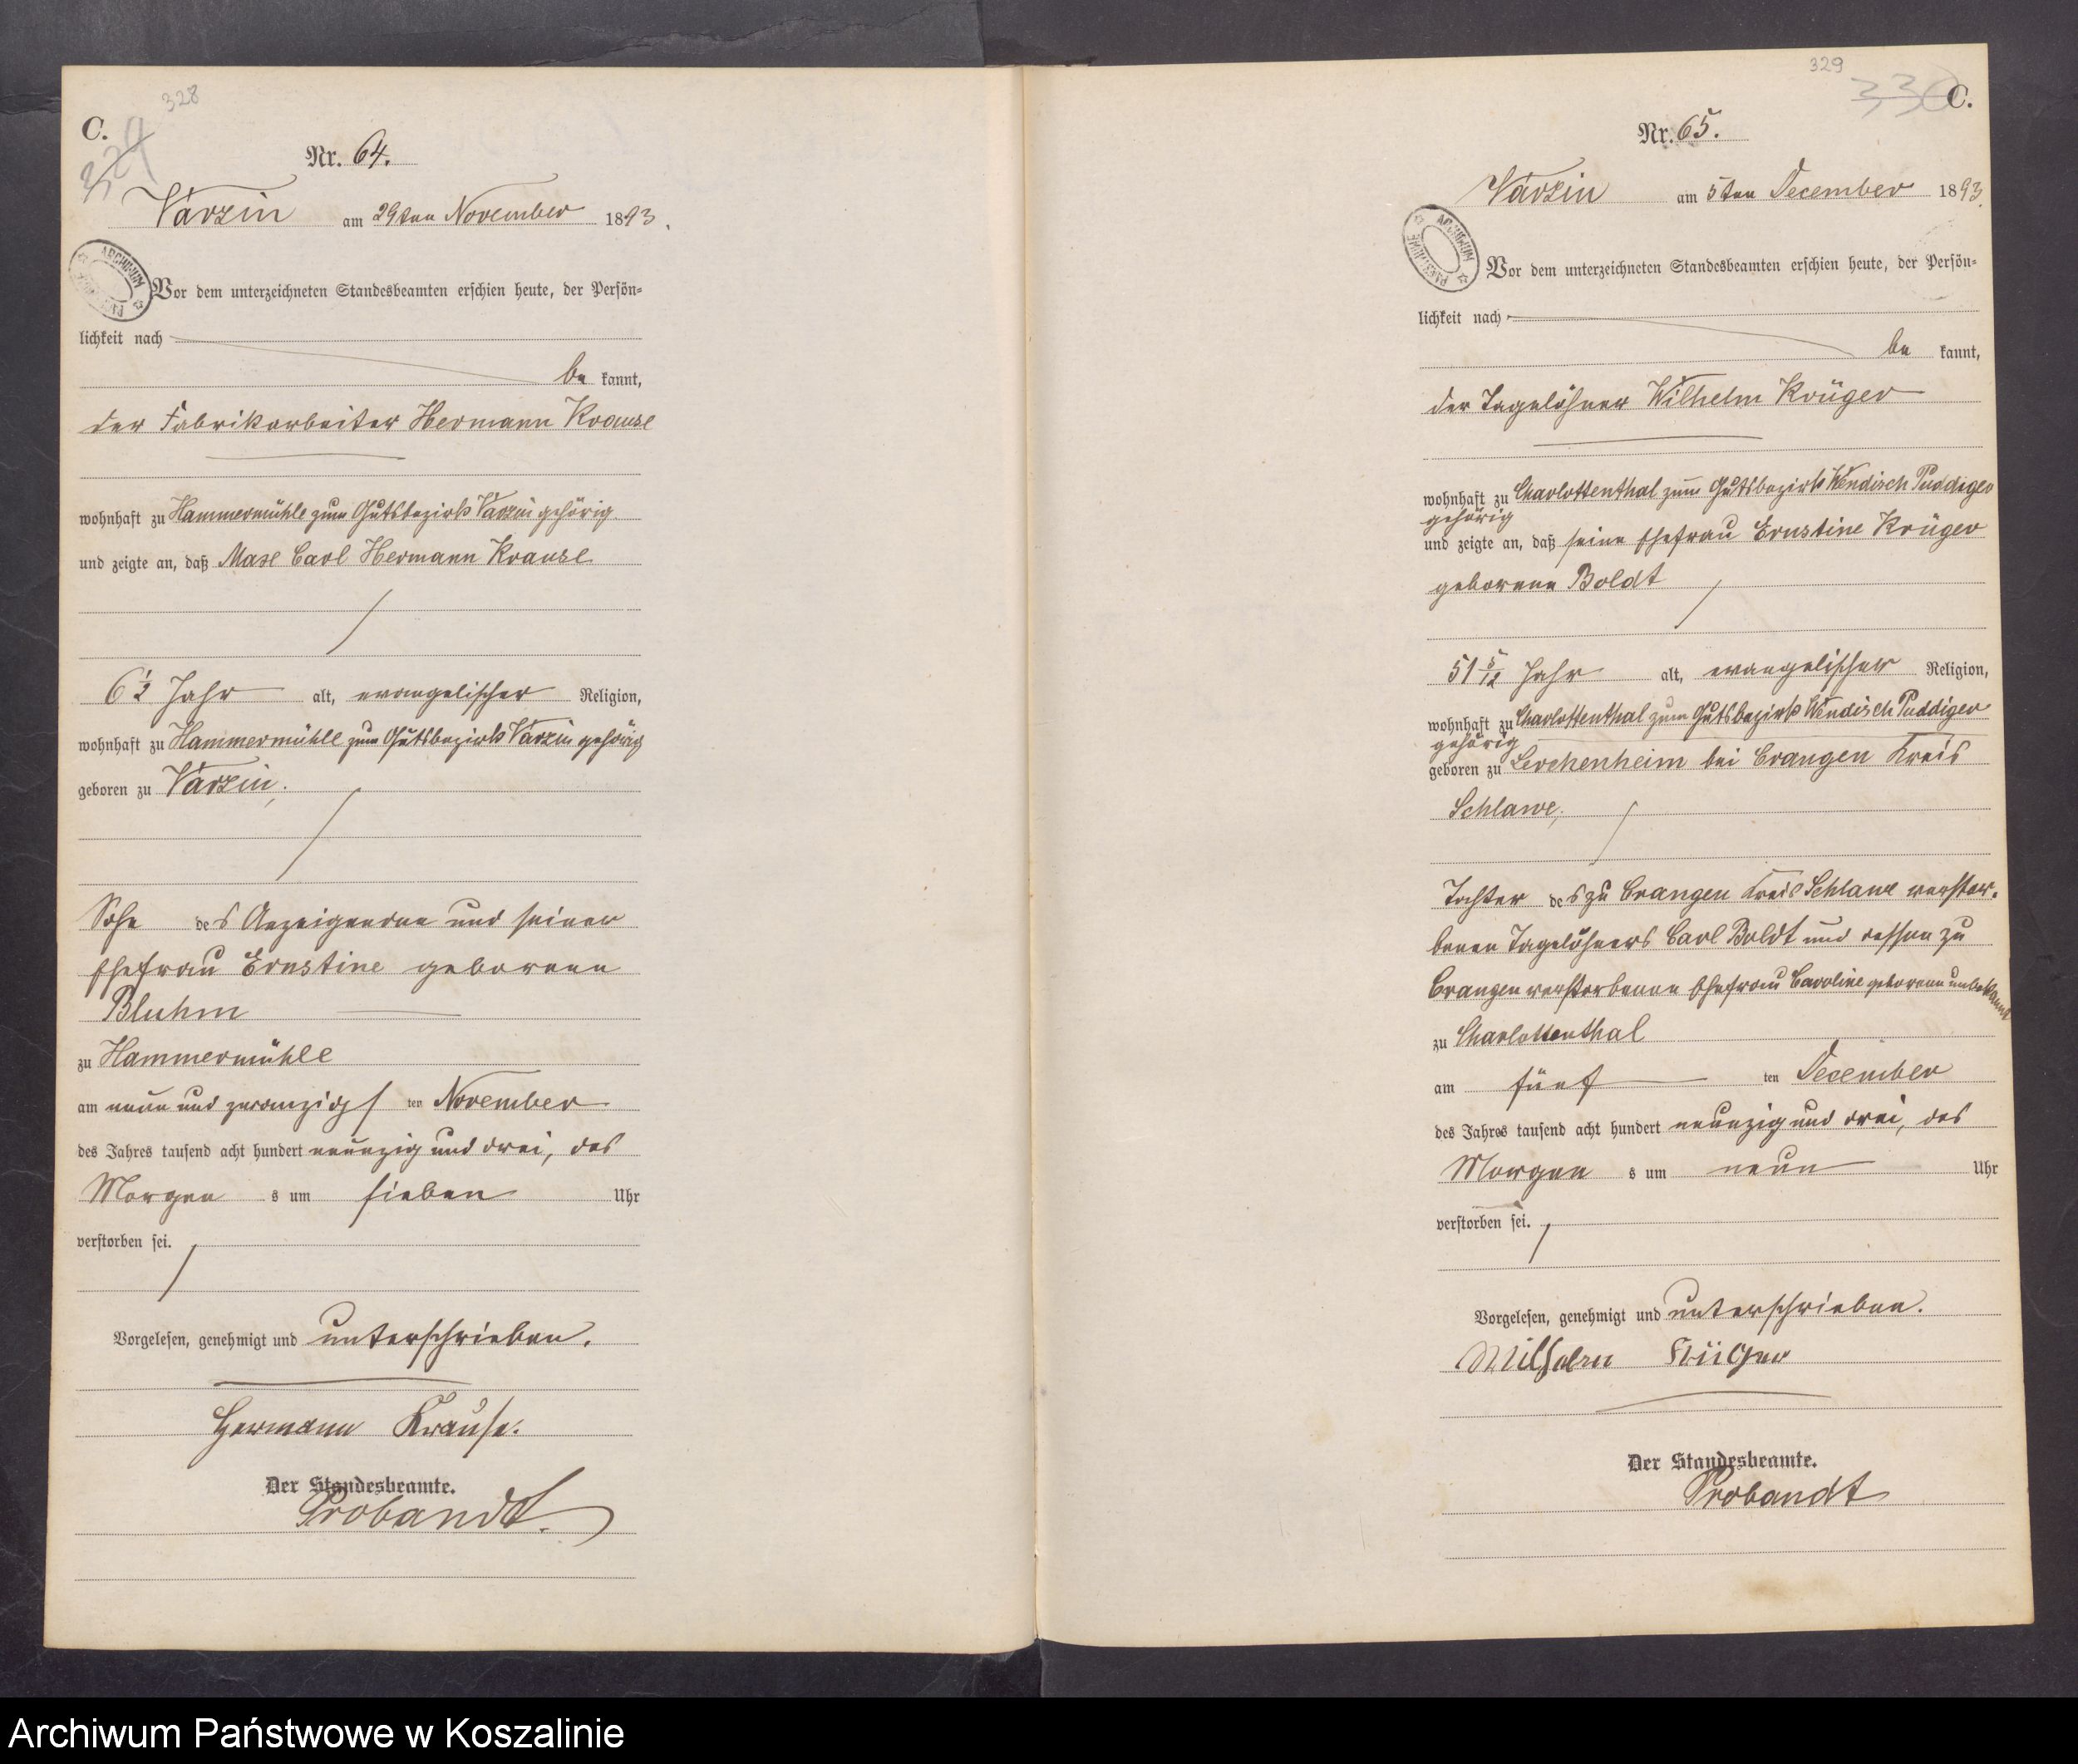 328
C.
329
Nr. 64.
Varzin am 29ten November 1893.
ARCHIWUM
Vor dem unterzeichneten Standesbeamten erschien heute, der Persön=
lichkeit nach
be kannt,
der Fabrikarbeiter Hermann Krause
wohnhaft zu Hammermühle zum Gutsbezirk Varzin gehörig
und zeigte an, daß Max Carl Hermann Krause
6 1/2 Jahr alt, evangelischer Religion,
wohnhaft zu Hammermühle zum Gutsbezirk Varzin gehörig
geboren zu Varzin,
Sohn des Anzeigenden und seiner
Ehefrau Ernstine geborene
Bluhm
zu Hammermühle
am neun und zwanzigs ten November
des Jahres tausend acht hundert neunzig und drei, des
Morgen s um sieben Uhr
verstorben sei.
Vorgelesen, genehmigt und unterschrieben.
Hermann Krause.
Der Standesbeamte.
Probandt.
329
330
C.
Nr. 65.
Varzin am 5ten December 1893.
ARCHIWUM
Vor dem unterzeichneten Standesbeamten erschien heute, der Persön=
lichkeit nach
be kannt,
der Tagelöhner Wilhelm Krüger
wohnhaft zu Charlottenthal zum Gutsbezirk Wendisch Puddiger
gehörig
und zeigte an, daß seine Ehefrau Ernstine Krüger
geborene Boldt
51 5/12 Jahr alt, evangelischer Religion,
wohnhaft zu Charlottenthal zum Gutsbezirk Wendisch Puddiger
gehörig
geboren zu Lerchenheim bei Crangen Kreis
Schlawe,
Tochter des zu Crangen Kreis Schlawe verstor-
benen Tagelöhners Carl Boldt und dessen zu
Crangen verstorbenen Ehefrau Caroline geborene unbekannt
zu Charlottenthal
am fünf ten December
des Jahres tausend acht hundert neunzig und drei, des
Morgen s um neun Uhr
verstorben sei.
Vorgelesen, genehmigt und unterschrieben.
Wilhelm Krüger
Der Standesbeamte.
Probandt
Archiwum Państwowe w Koszalinie